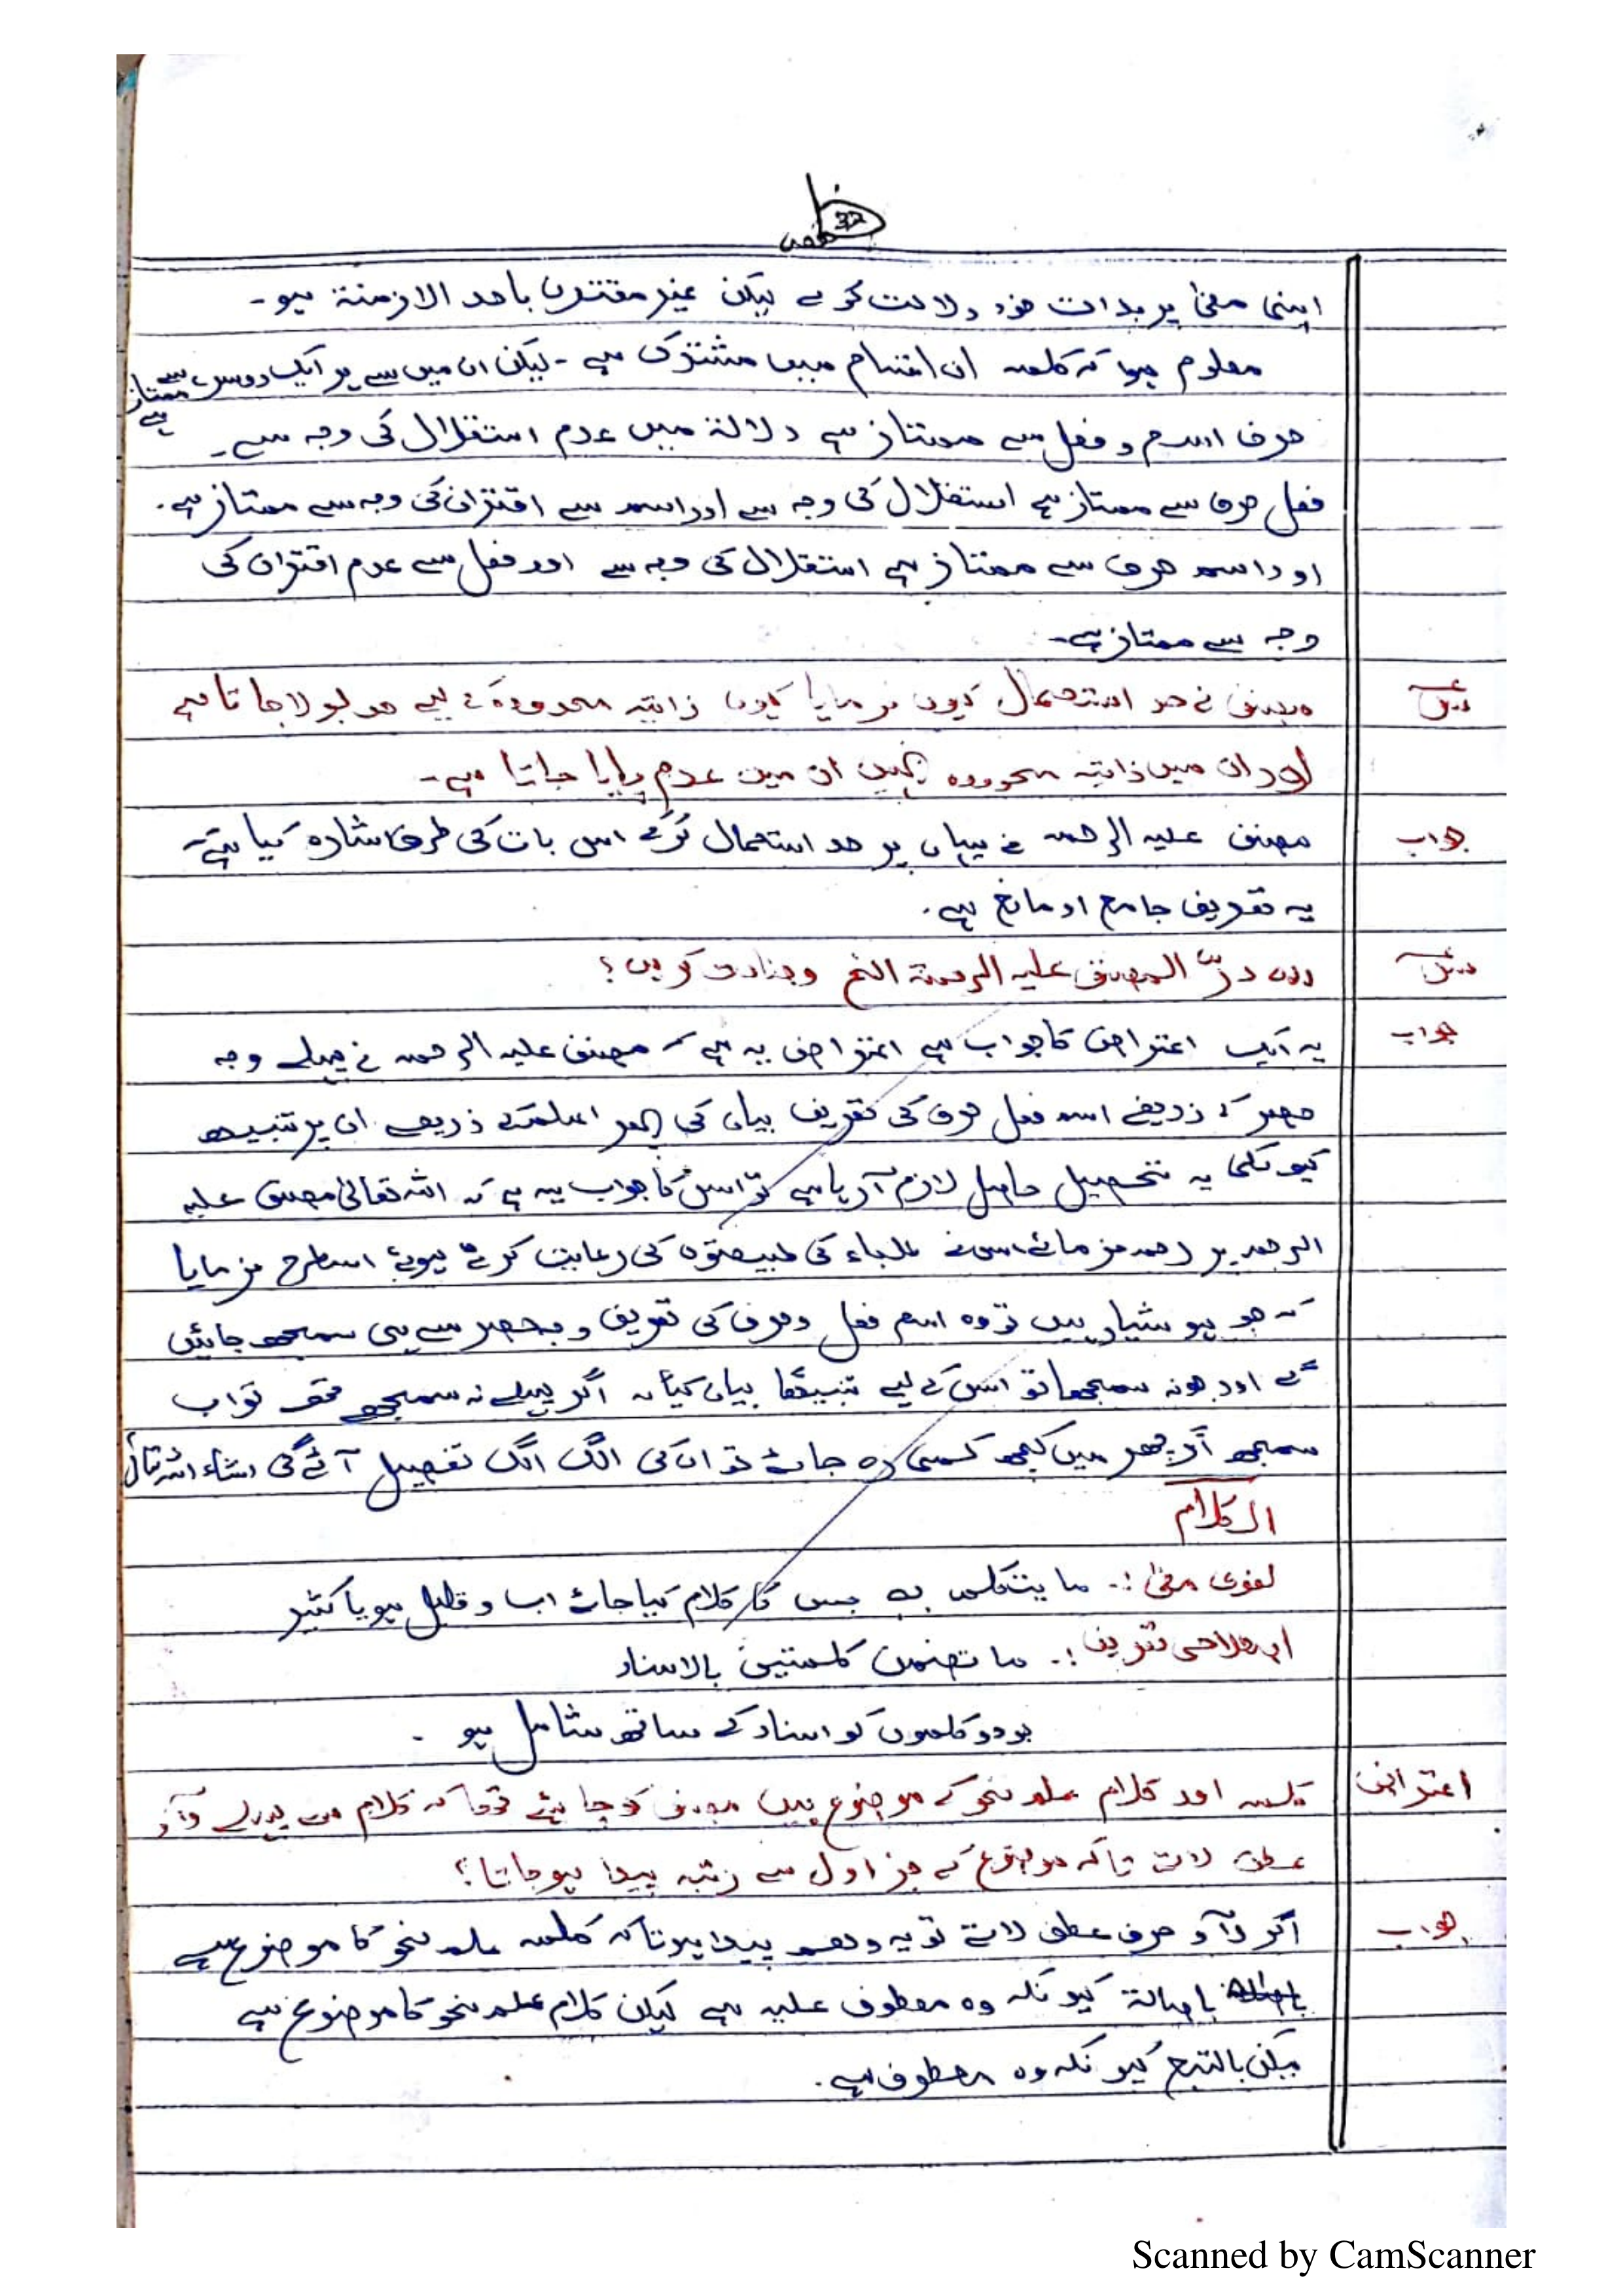 32
اپنی معنیٰ پر بذات خود دلالت کرے لیکن غیر مقترن باحد الازمنۃ ہو۔
معلوم ہوا کہ کلمہ ان اقسام میں مشترک ہے ۔ لیکن ان میں سے ہر ایک دوسرے سے ممتاز ہے
حرف اسم و فعل سے ممتاز ہے دلالۃ میں عدم استقلال کی وجہ سے۔
فعل حرف سے ممتاز ہے استقلال کی وجہ سے اور اسم سے اقتران کی وجہ سے ممتاز ہے۔
اور اسم حرف سے ممتاز ہے استقلال کی وجہ سے اور فعل سے عدم اقتران کی
وجہ سے ممتاز ہے۔
مصنف نے حد استعمال کیوں فرمایا کیوں ذاتیہ محدودہ کے لیے حد بولا جاتا ہے
اور ان میں ذاتیہ محدودہ نہیں ان میں عدم پایا جاتا ہے۔
جواب مصنف علیہ الرحمہ نے یہاں پر حد استعمال کرکے اس بات کی طرف اشارہ کیا ہے کہ
یہ تعریف جامع اور مانع ہے۔
للہ درّ المصنف علیہ الرحمۃ الخ وضاحت کریں ؟
جواب یہ ایک اعتراض کا جواب ہے اعتراض یہ ہے کہ مصنف علیہ الرحمہ نے پہلے وجہ
حصر کے ذریعے اسم فعل حرف کی تعریف بیان کی پھر اعلم کے ذریعے ان پر تنبیہ
کیونکہ یہ تحصیل حاصل لازم آ رہا ہے تو اس کا جواب یہ ہے کہ اللہ تعالیٰ مصنف علیہ
الرحمہ پر رحم فرمائے اس نے طلباء کی طبیعتوں کی رعایت کرتے ہوئے اسطرح فرمایا
کہ جو ہوشیار ہیں تو وہ اسم فعل و حرف کی تعریف وجہ حصر سے ہی سمجھ جائیں
گے اور جو نہ سمجھا تو اس کے لیے تنبیھًا بیان کیا کہ اگر پہلے نہ سمجھے تھے تو اب
سمجھ اگر پھر میں کچھ کمی رہ جائے تو ان کی الگ الگ تفصیل آئے گی انشاء اللہ تعالیٰ
الکلام
لغوی معنیٰ :۔ ما یتکلم بہ جس کا کلام کیا جائے اب و قلیل ہو یا کثیر
اصطلاحی تعریف :۔ ما تضمن کلمتین بالاسناد
جو دو کلموں کو اسناد کے ساتھ شامل ہو ۔
اعتراض کلمہ اور کلام علم نحو کے موضوع ہیں مصنف کو چاہئے تھا کہ کلام سے پہلے واؤ
عطف لاتے تاکہ موضوع کے جز اول سے رتبہ پیدا ہوجاتا ؟
جواب اگر واؤ حرف عطف لاتے تو یہ وھم پیدا ہوتا کہ کلمہ علم نحو کا موضوع ہے
باصالۃ کیونکہ وہ معطوف علیہ ہے لیکن کلام علم نحو کا موضوع ہے
لیکن بالتبع کیونکہ وہ معطوف ہے۔
Scanned by CamScanner